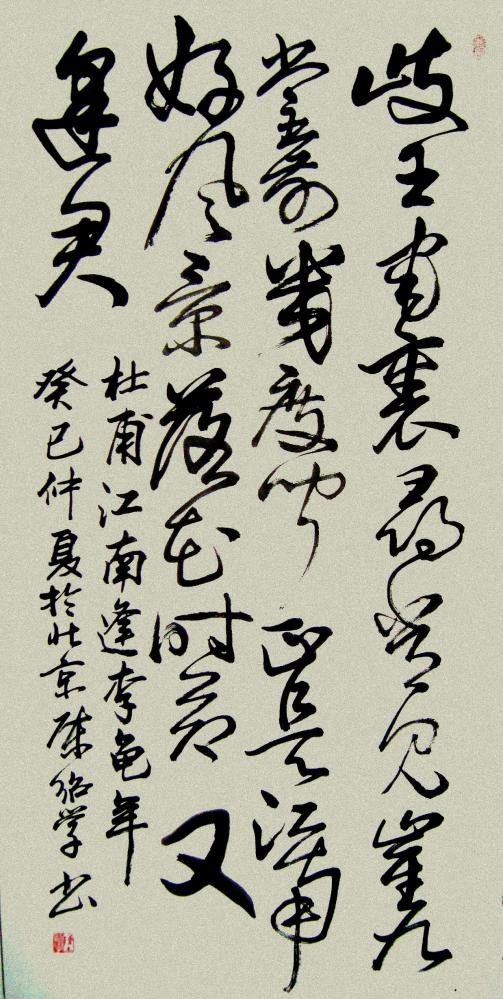 岐王宅裏尋常見崔九
堂前幾度闻正是江南
好风景落花时节又
逢君
杜甫江南逢李龟年
癸巳仲夏於北京绍学书